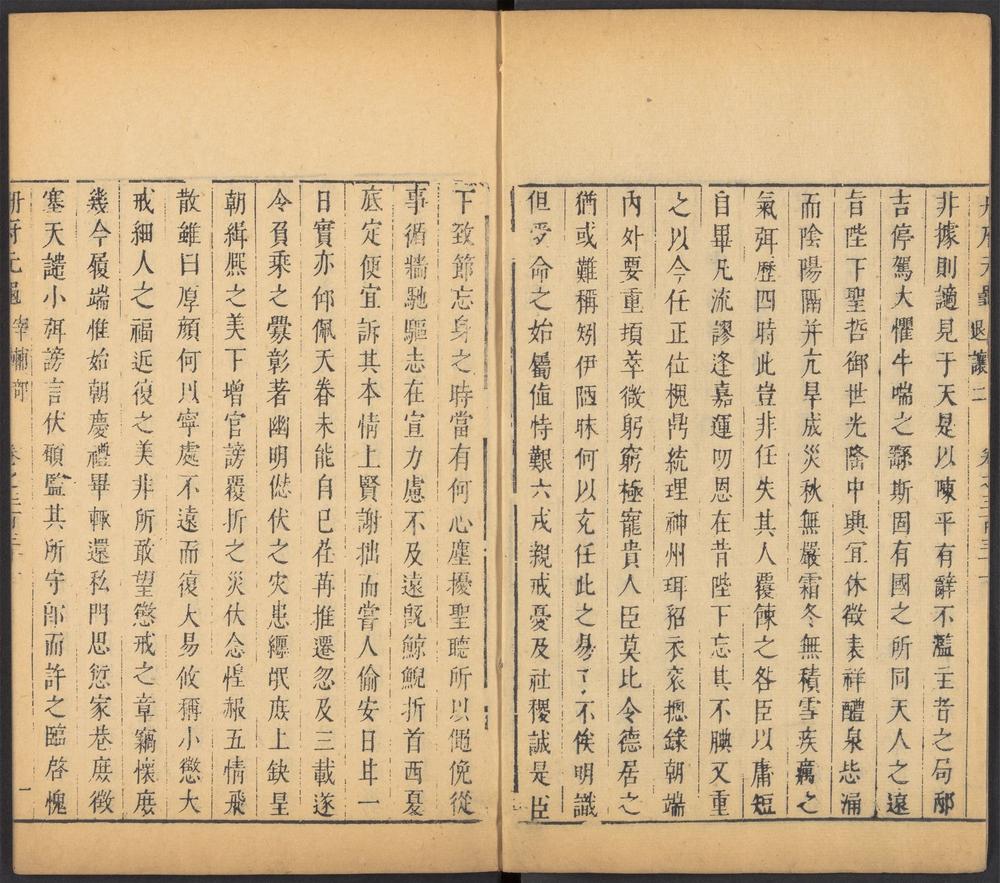 冊府元龜 退讓二 卷之三百三十一
非據則謫見于天是以陳平有辭不濫主者之局邴
吉停駕大懼牛喘之繇斯固有國之所同天人之遠
旨陛下聖哲御世光啓中興冝休徵表祥醴泉毖涌
而陰陽隔并亢旱成災秋無嚴霜冬無積雪疾癘之
氣弭歷四時此豈非任失其人覆餗之咎臣以庸短
自畢凡流謬逢嘉運叨恩在昔陛下忘其不腆又重
之以今任正位槐鼎統理神州珥貂衣衮揔錄朝端
內外要重頃萃微躬窮極寵貴人臣莫比令德居之
猶或難稱矧伊陋昧何以充任此之易了不俟明識
但受命之始屬值恃艱六戎親戒憂及社稷誠是臣
下致節忘身之時當有何心塵擾聖聴所以僶俛從
事循墻馳驅志在宣力慮不及遠旣鯨鯢折首西夏
底定便宜訴其本情上賢謝拙而嘗人偷安日甘一
日實亦仰佩天眷未能自巳荏苒推遷忽及三載遂
令負乗之釁彰著幽明愆伏之灾患纒氓庶上缺皇
朝緝熈之美下增官謗覆折之災伏念惶赧五情飛
散雖曰厚顔何以寧處不遠而復大易攸稱小懲大
戒細人之福近復之美非所敢望懲戒之章竊懷庶
幾今履端惟始朝慶禮畢輙還私門思愆家巷庶微
塞天譴小弭謗言伏願監其所守郎而許之臨啓愧
冊府元龜 宰輔部 卷之三百三十一 一